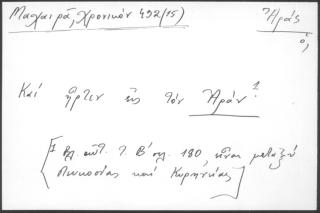 Μαχαιρᾶ, Χρονικόν 492(15)
Ἀράς
ὁ,
Καὶ ἦρτεν εἰς τὸν Ἀράν.¹
[¹ Βλ. αὐτ. τ. Β' σελ. 180, εἶναι μεταξὺ
Λευκωσίας καὶ Κυρηνείας]